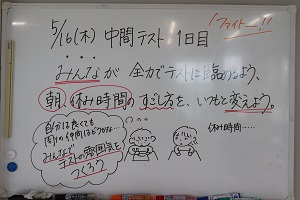 ファイトー!!
5/16(木) 中間テスト 1日目
みんなが 全力でテストに臨めるよう、
朝、休み時間のすごし方を、いつもと変えよう。
自分は良くても
周りの仲間はどうかな…
みんなで
テストの雰囲気を
つくろう
休み時間……